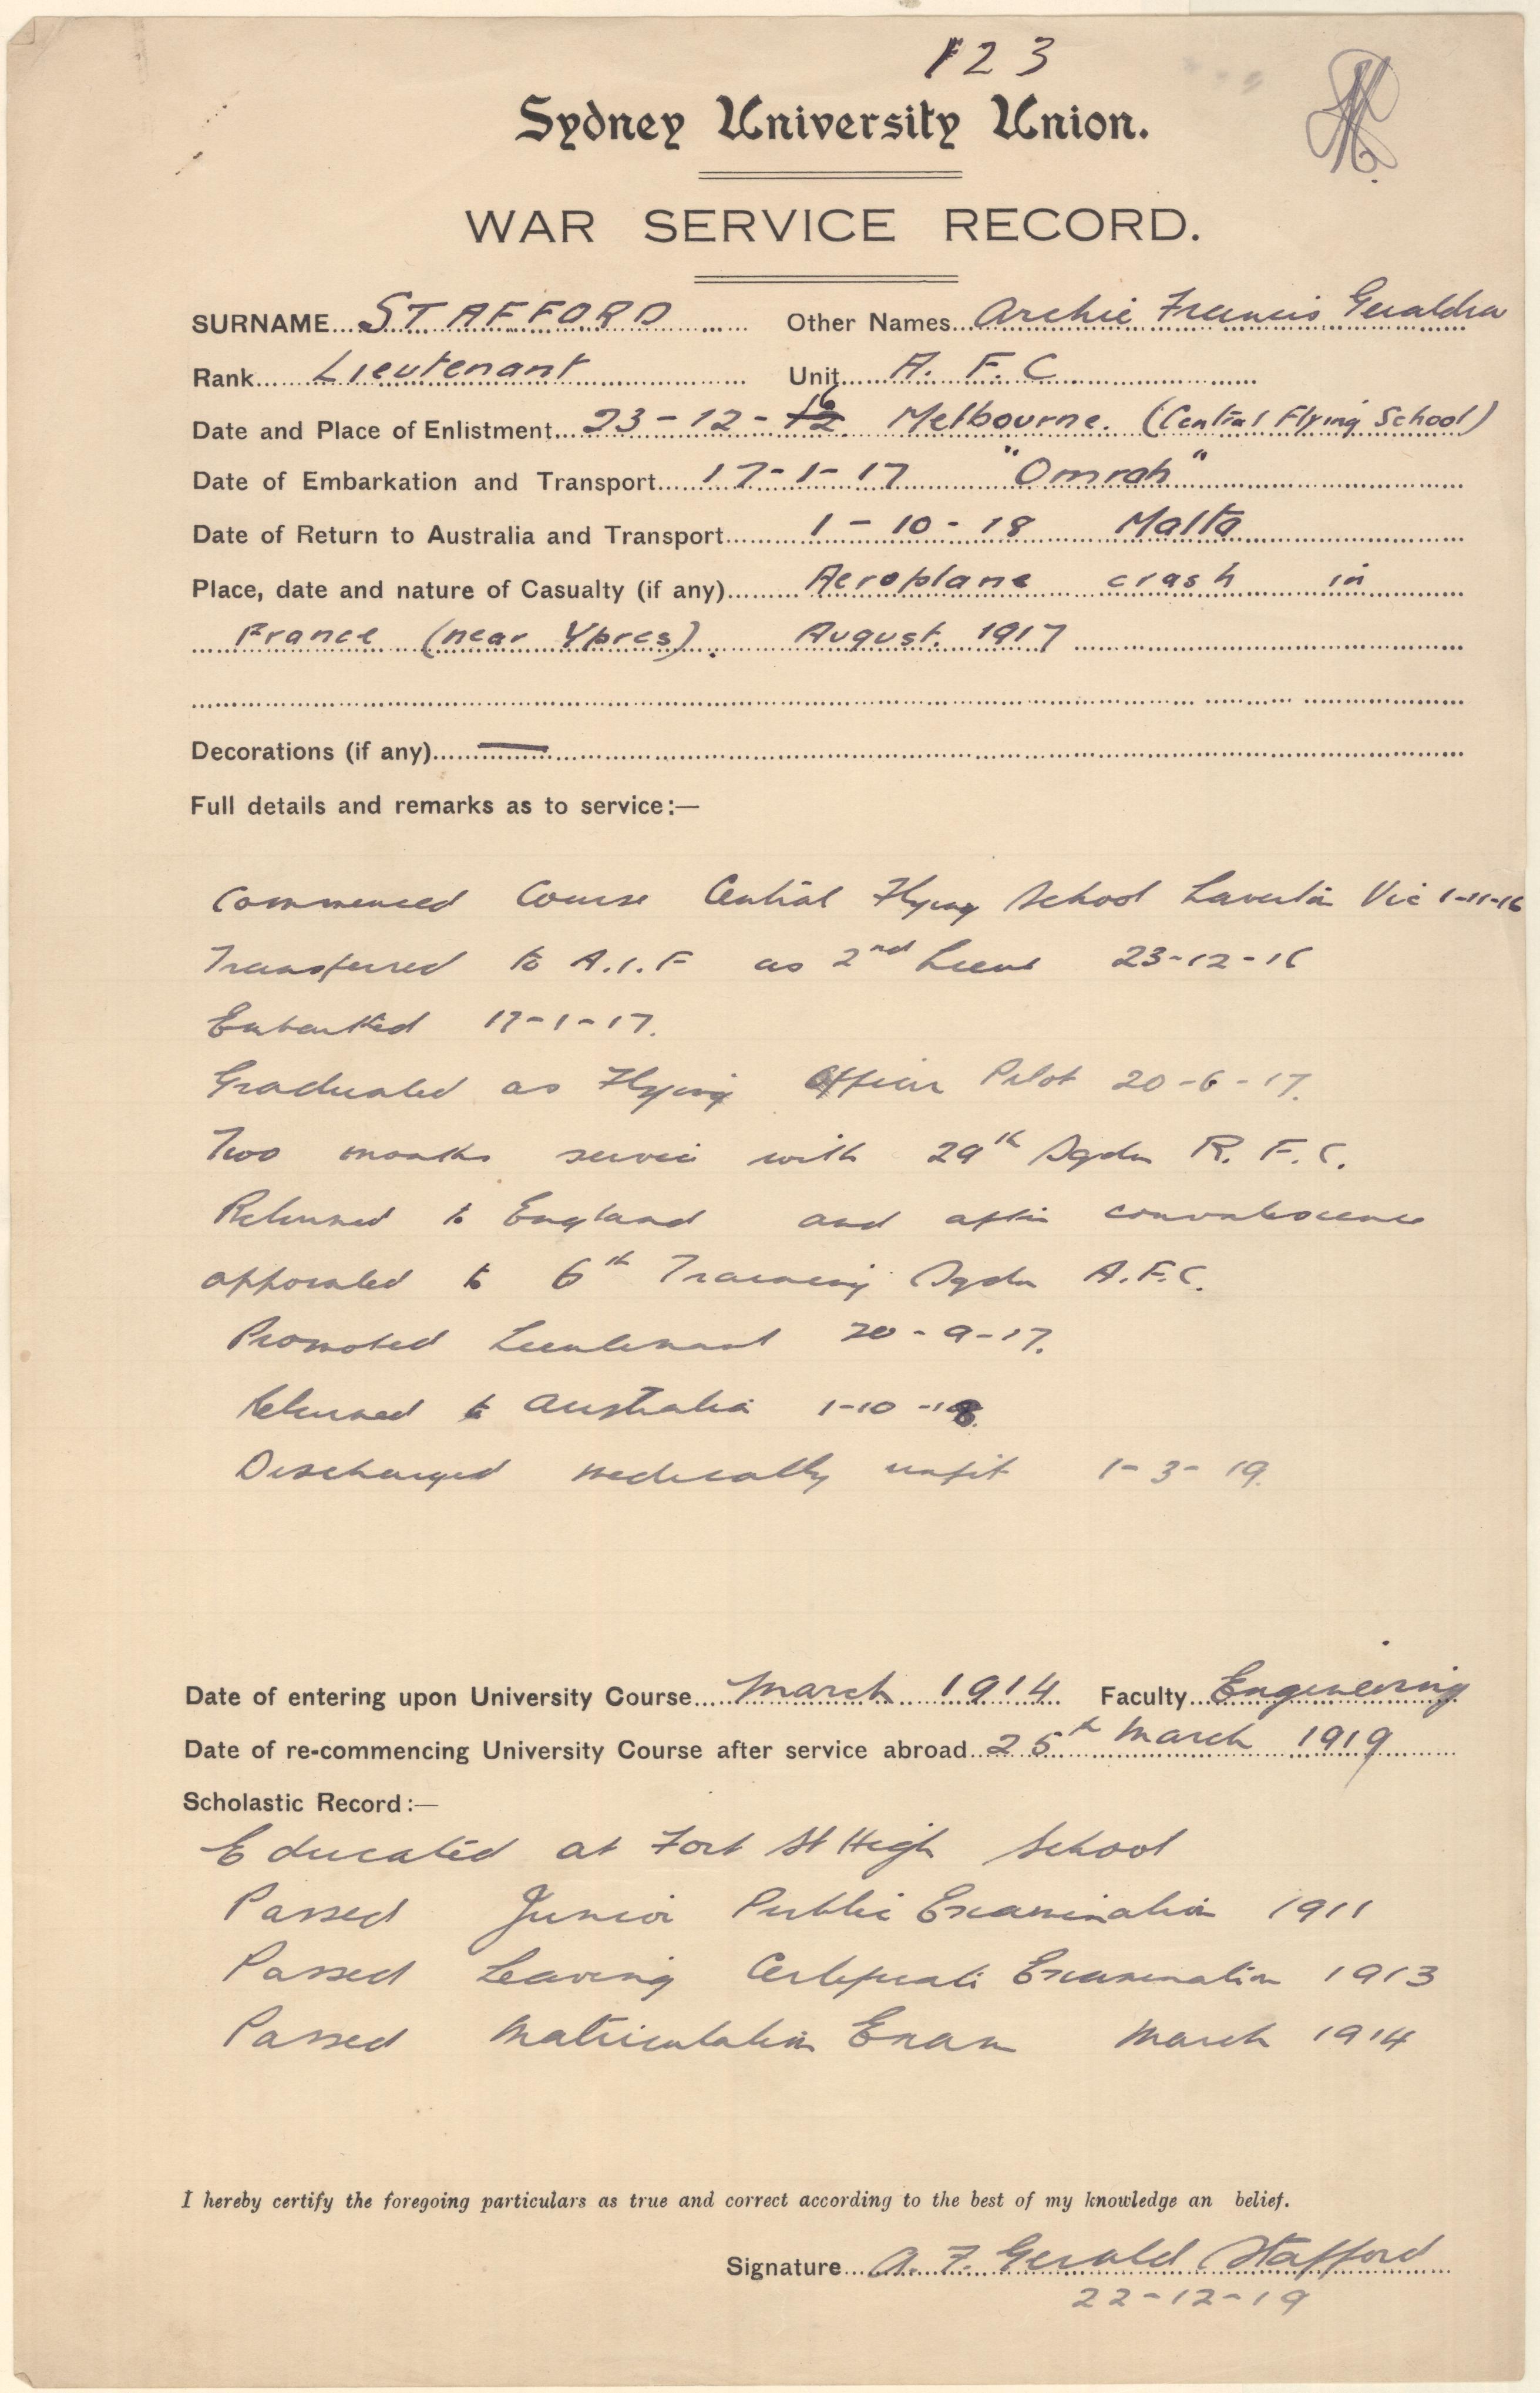 123
Sydney University Union.
WAR SERVICE RECORD.
SURNAME... STAFFORD ... Other Names... Archie Francis
Rank... Lieutenant ... Unit... A. F. C ...
Date and Place of Enlistment... 23-12-16 Melbourne. (Central Flying School)
Date of Embarkation and Transport... 17-1-17 "Omrah"
Date of Return to Australia and Transport... 1-10-18 Malta
Place, date and nature of Casualty (if any)... Aeroplane crash in
France (near Ypres). August. 1917
Decorations (if any)... —
Full details and remarks as to service:—
Commenced Course Central Flying School Laverton Vic 1-11-16
Transferred to A.I.F as 2nd Lieut 23-12-16
Embarked 17-1-17.
Graduated as Flying Officer Pilot 20-6-17.
Two months service with 29th Sqdn R. F. C.
Returned to England and after convalescence
appointed to 6th Training Sqdn A.F.C.
Promoted Lieutenant 20-9-17.
Returned to Australia 1-10-18.
Discharged medically unfit 1-3-19.
Date of entering upon University Course... March 1914 Faculty... Engineering
Date of re-commencing University Course after service abroad... 25th March 1919
Scholastic Record:—
Educated at Fort St High School
Passed Junior Public Examination 1911
Passed Leaving Certificate Examination 1913
Passed Matriculation Exam March 1914
I hereby certify the foregoing particulars as true and correct according to the best of my knowledge an belief.
Signature... A. F. Gerald Stafford
22-12-19